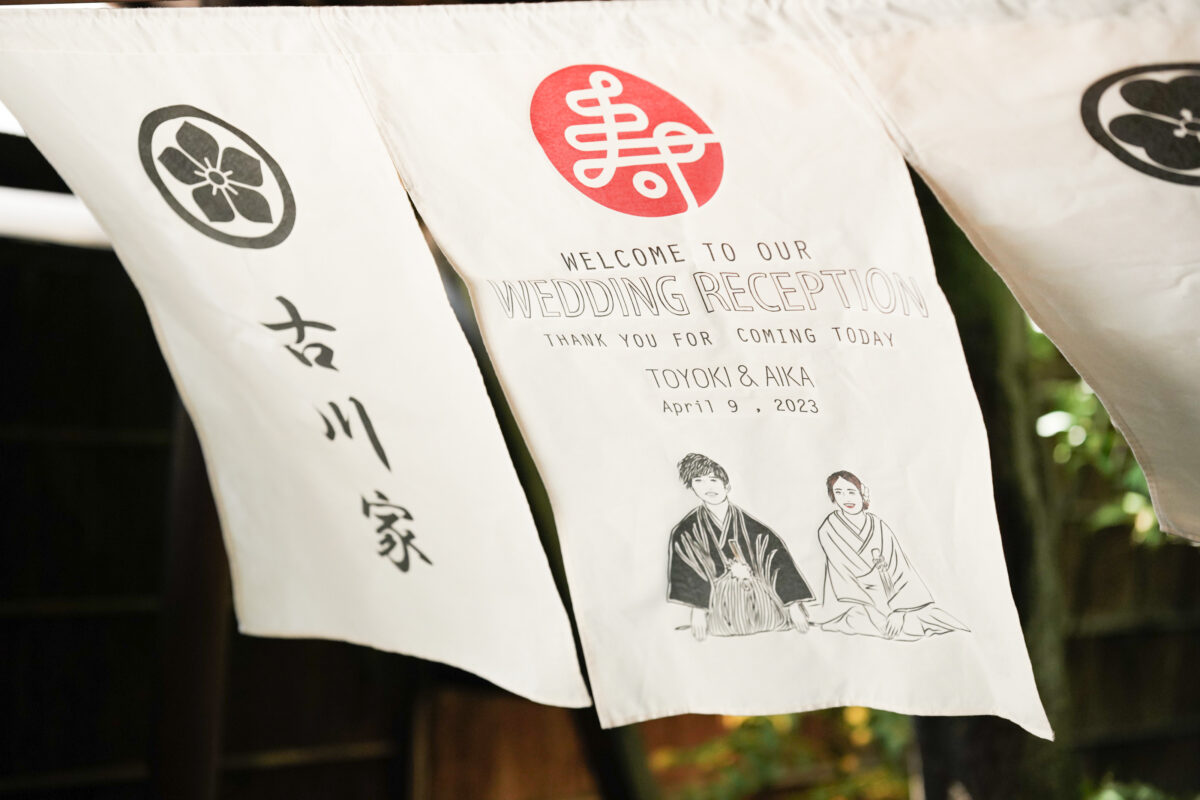 古川家
寿
WELCOME TO OUR
WEDDING RECEPTION
THANK YOU FOR COMING TODAY
TOYOKI & AIKA
April 9 , 2023